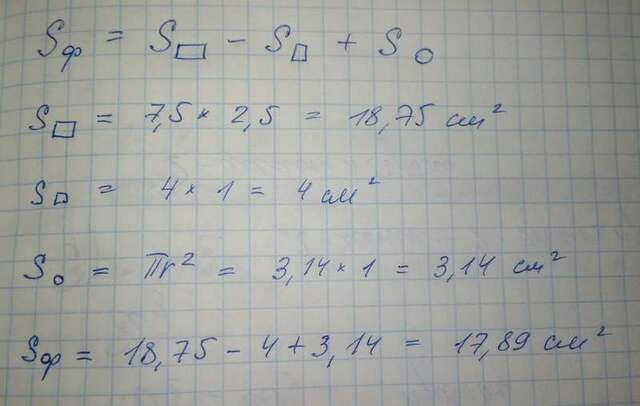 Sф = S▭ - S▯ + S○
S▭ = 7,5 × 2,5 = 18,75 см²
S▭ = 4 × 1 = 4 см²
S○ = πr² = 3,14 × 1 = 3,14 см²
Sф = 18,75 - 4 + 3,14 = 17,89 см²